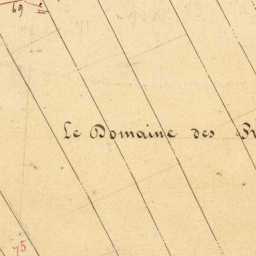 69
Le Domaine des
75